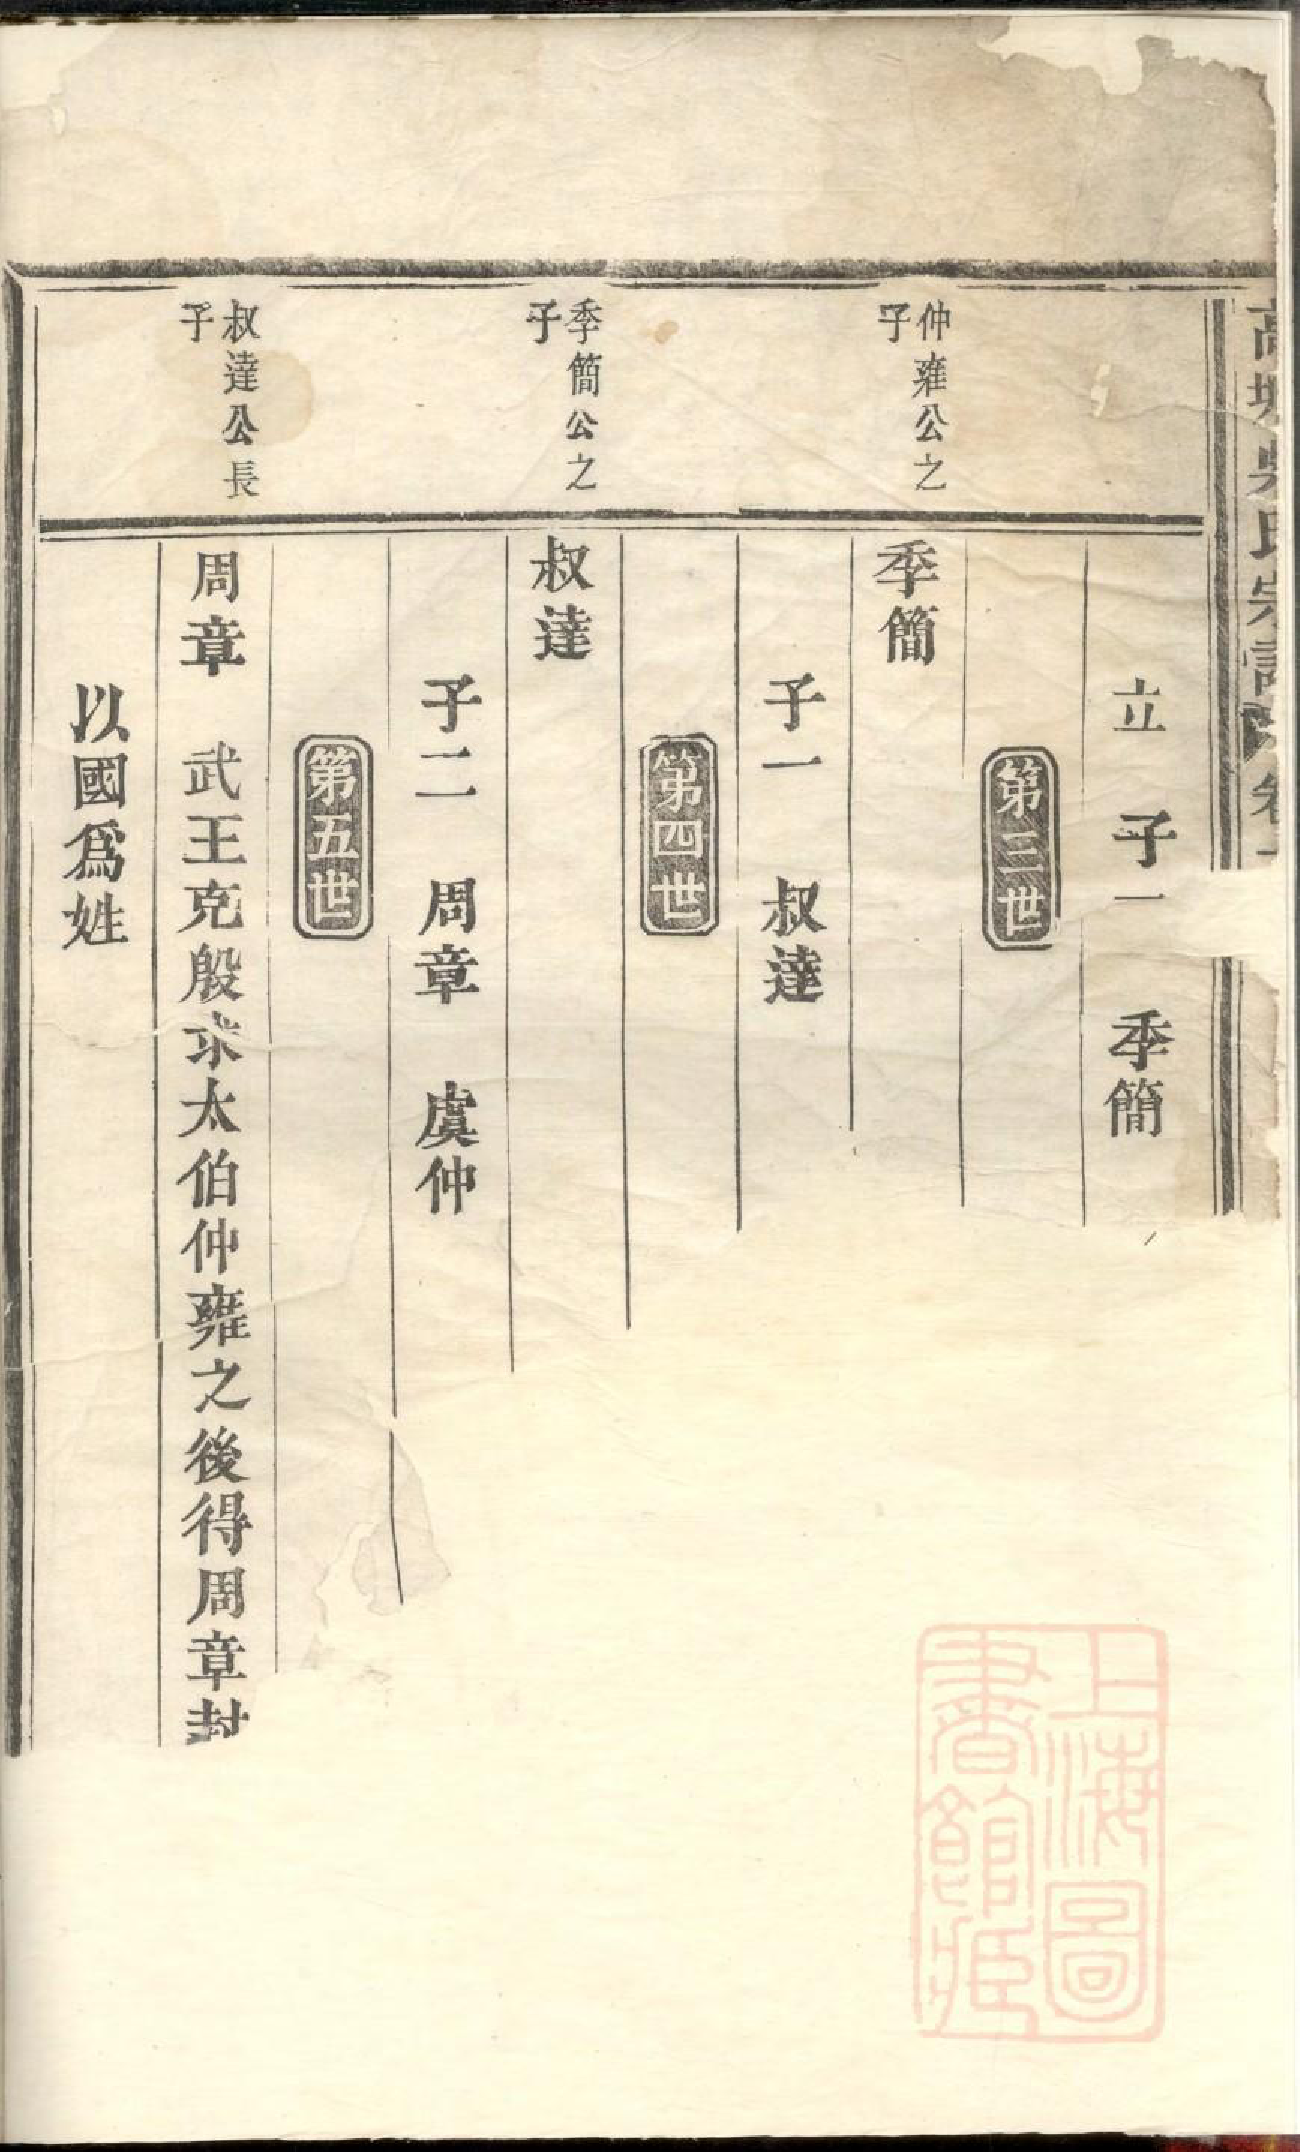 吳氏宗譜
立　子一　季簡
第三世
仲雍公之
子
季簡
子一　叔達
第四世
季簡公之
子
叔達
子二　周章　虞仲
第五世
叔達公長
子
周章　武王克殷求太伯仲雍之後得周章封
以國爲姓
上海圖
書館藏